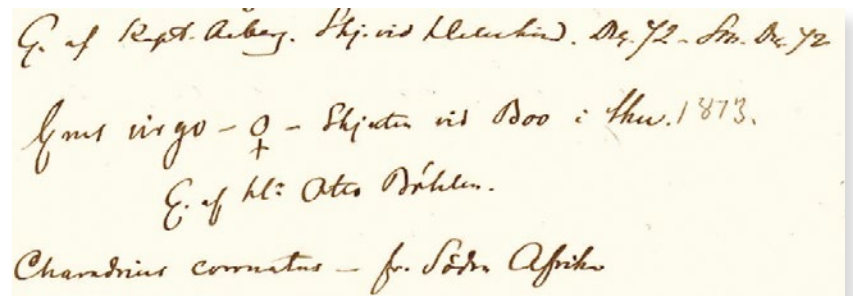 G. af Kapt. Skj. vid Dec. 72 - Dec. 72
Grus virgo - ♀ - Skjuten vid Boo i 1873.
G. af Hr Otto Bohlin.
Charadrius coronatus - fr. Södra Afrika